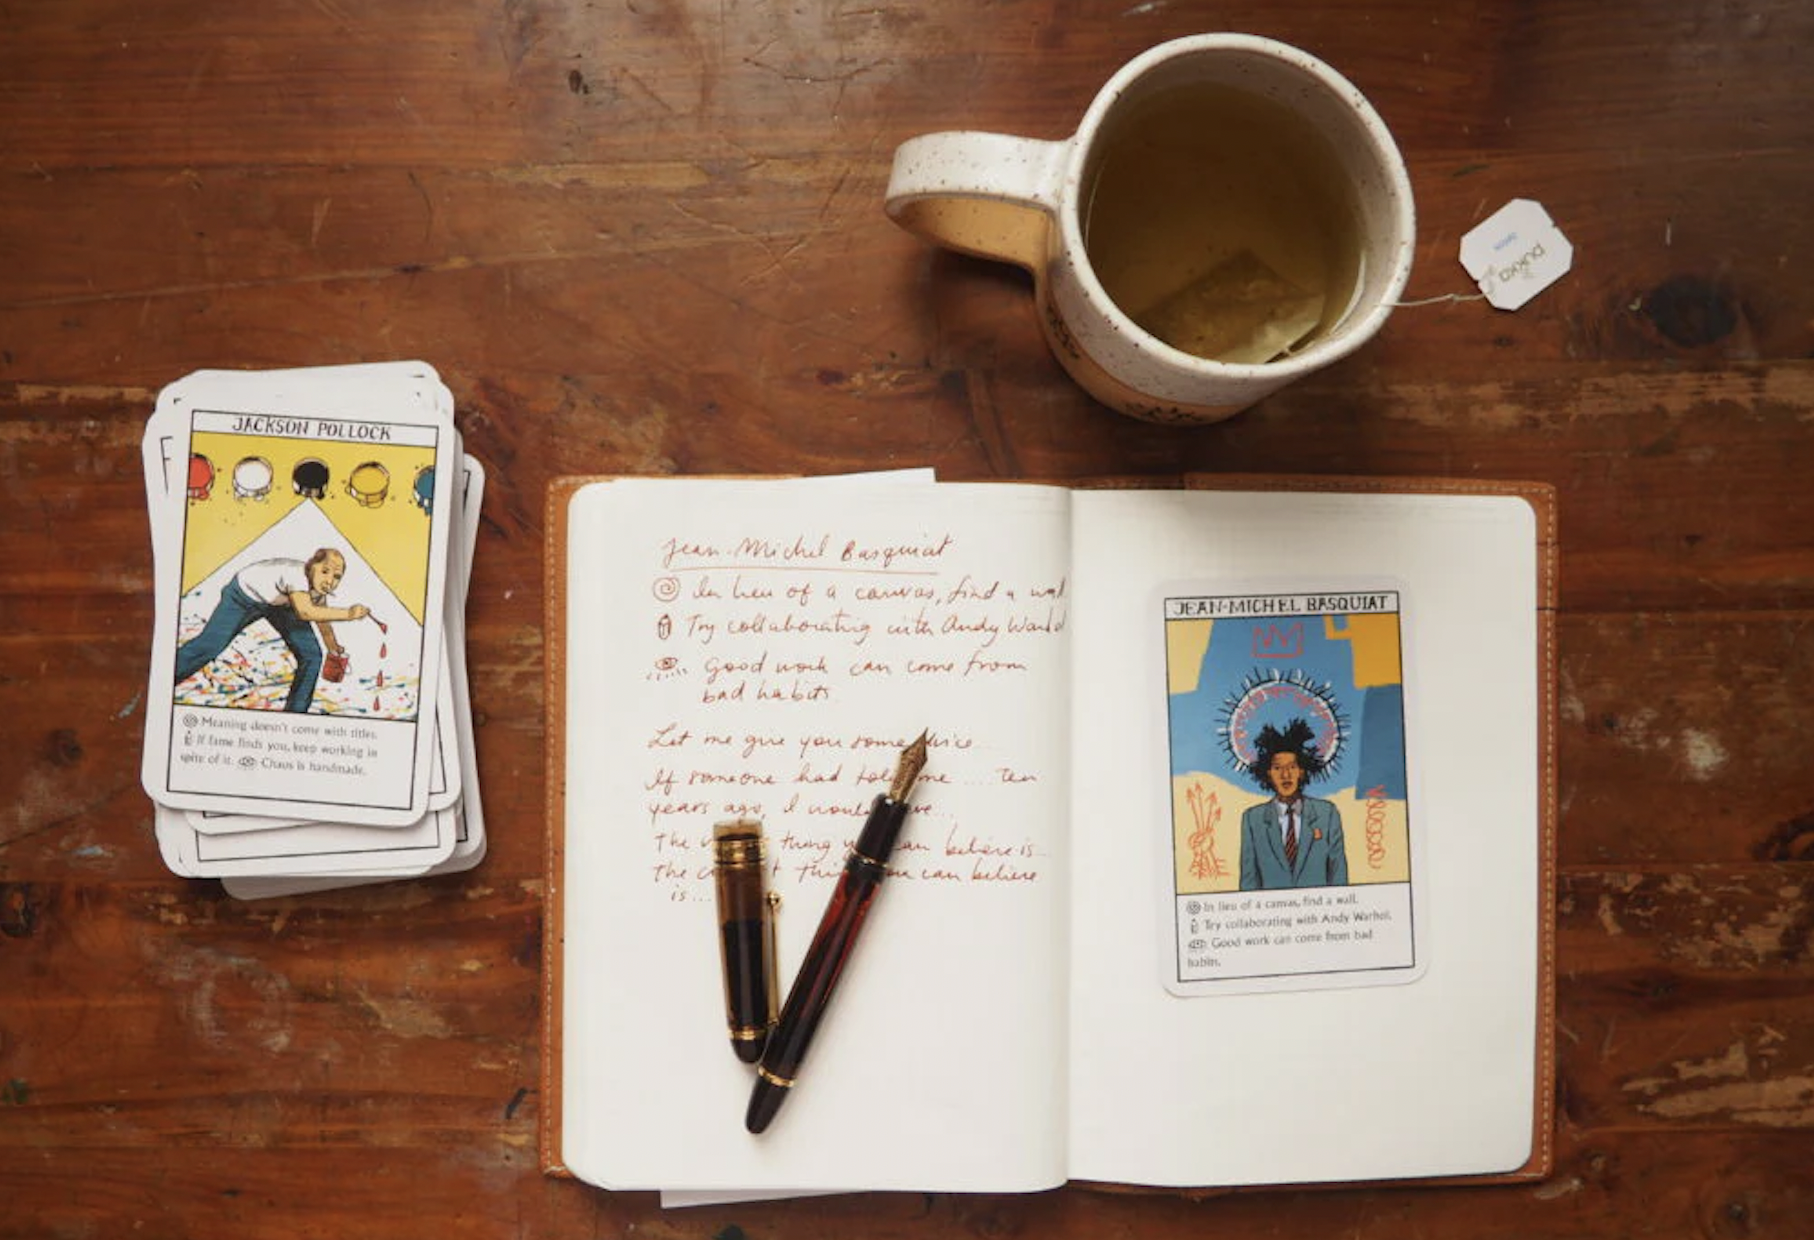 JACKSON POLLOCK
Meaning doesn't come with titles.
If fame finds you, keep working in
spite of it. Chaos is handmade.
pukka
detox
Jean-Michel Basquiat
In lieu of a canvas, find a wall
Try collaborating with Andy Warhol
Good work can come from
bad habits
Let me give you some
If someone had told me ... ten
years ago, I would
The thing can believe is
the thing you can believe
is...
JEAN-MICHEL BASQUIAT
In lieu of a canvas, find a wall.
Try collaborating with Andy Warhol.
Good work can come from bad
habits.